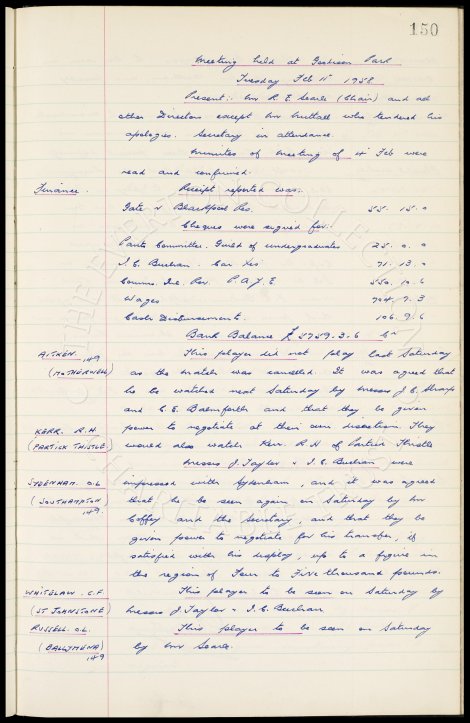 150
Meeting held at Goodison Park
Tuesday Feb 11th 1958
Present:- Mr R. E. Searle (Chair) and all
other Directors except Mr Nuttall who tendered his
apologies. Secretary in attendance.
Minutes of meeting of 4th Feb were
read and confirmed.
Finance. Receipt reported was:
Gate v Blackpool Res. 55. 15. 0
Cheques were signed for:
Pants Committee. Guild of undergraduates 25. 0. 0
I. E. Buchan. Car Exs 71. 13. 0
Comms. Inl. Rev. P.A.Y.E 550. 10. 6
Wages 704. 7. 3
Cash Disbursements. 106. 9. 6
Bank Balance £5759.3.6 Cr
AITKEN. 149 This player did not play last Saturday
(MOTHERWELL) as the match was cancelled. It was agreed that
he be watched next Saturday by Messrs J. C. Sharp
and C. E. Balmforth and that they be given
KERR. R.H. power to negotiate at their own discretion. They
(PARTICK THISTLE) would also watch Kerr. R.H of Partick Thistle
Messrs J. Taylor & I. E. Buchan were
SYDENHAM. O.L impressed with Sydenham, and it was agreed
(SOUTHAMPTON) that he be seen again on Saturday by Mr
149 Coffey and the Secretary, and that they be
given power to negotiate for his transfer, if
satisfied with his display, up to a figure in
the region of Four to Five thousand pounds.
WHITELAW. C.F This player to be seen on Saturday by
(ST JOHNSTONE) Messrs J Taylor & I. E. Buchan.
RUSSELL. O.L. This player to be seen on Saturday
(BALLYMENA) by Mr Searle.
149